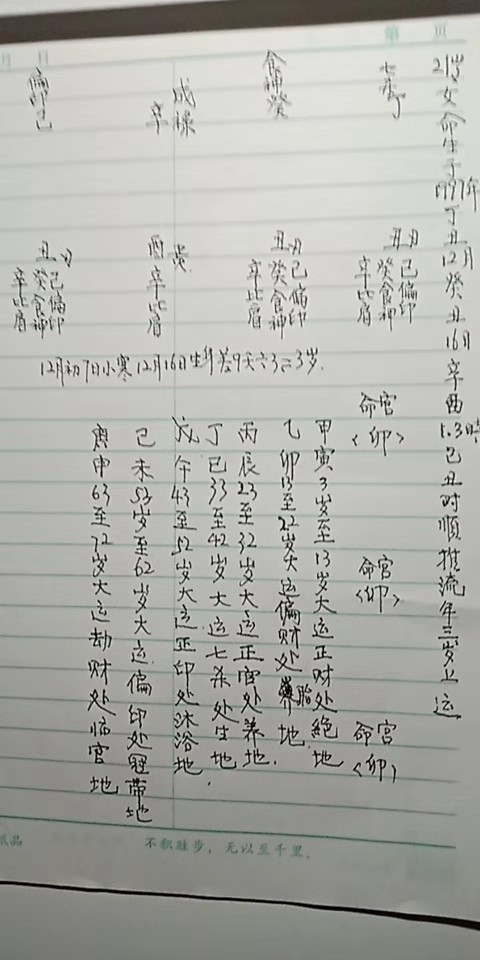 第 页
月 日
21岁女命生于1997年丁丑12月癸丑16日辛酉1.3時己丑时顺推流年三岁上运
七杀丁
食神癸
辛
偏印己
丑
己偏印
癸食神
辛比肩
丑
己偏印
癸食神
辛比肩
酉
辛比肩
丑
己偏印
癸食神
辛比肩
12月初7日小寒12月16日生
命宫
<卯>
命宫
<卯>
命宫
<卯>
甲寅3岁至13岁大运正财处絕地
乙卯13至22岁大运偏财处胎地.
丙辰23至32岁大运正官处养地.
丁巳33至42岁大运七杀处生地.
戊午43至52岁大运正印处沐浴地
己未53岁至62岁大运偏印处冠带地
庚申63至72岁大运劫财处临官地
不积跬步，无以至千里。
纸品